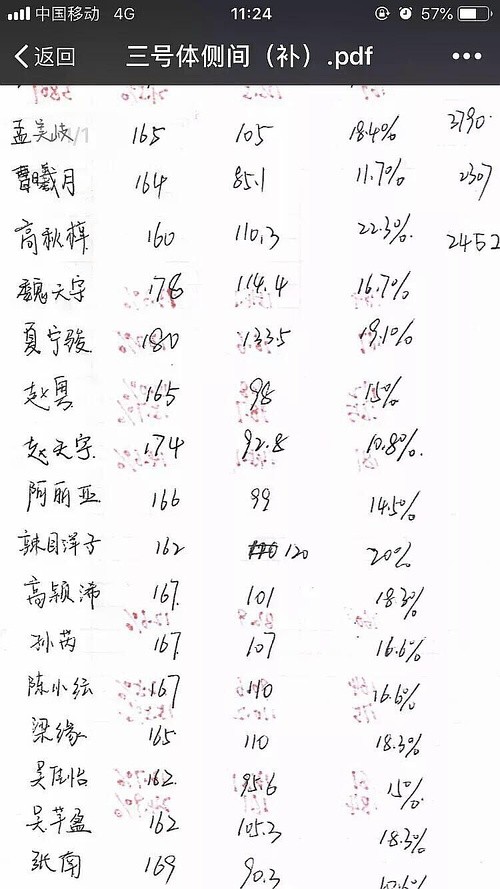 中国移动 4G 11:24 57%
返回 三号体侧间（补）.pdf
孟美岐 165 105 18.4% 2790
/1
曹曦月 164 85.1 11.7% 2307
高秋梓 160 110.3 22.3% 2452
魏天宇 178 114.4 16.7%
夏宁骏 180 133.5 19.1%
赵粤 165 98 15%
赵天宇 174 92.8 10.8%
阿丽亚 166 99 14.5%
辣目洋子 162 120 20%
高颖浠 167 101 18.3%
孙芮 167 107 16.6%
陈小纭 167 110 16.6%
梁缘 165 110 18.3%
吴佳怡 162 95.6 15%
吴芊盈 162 105.3 18.3%
张南 169 90.3